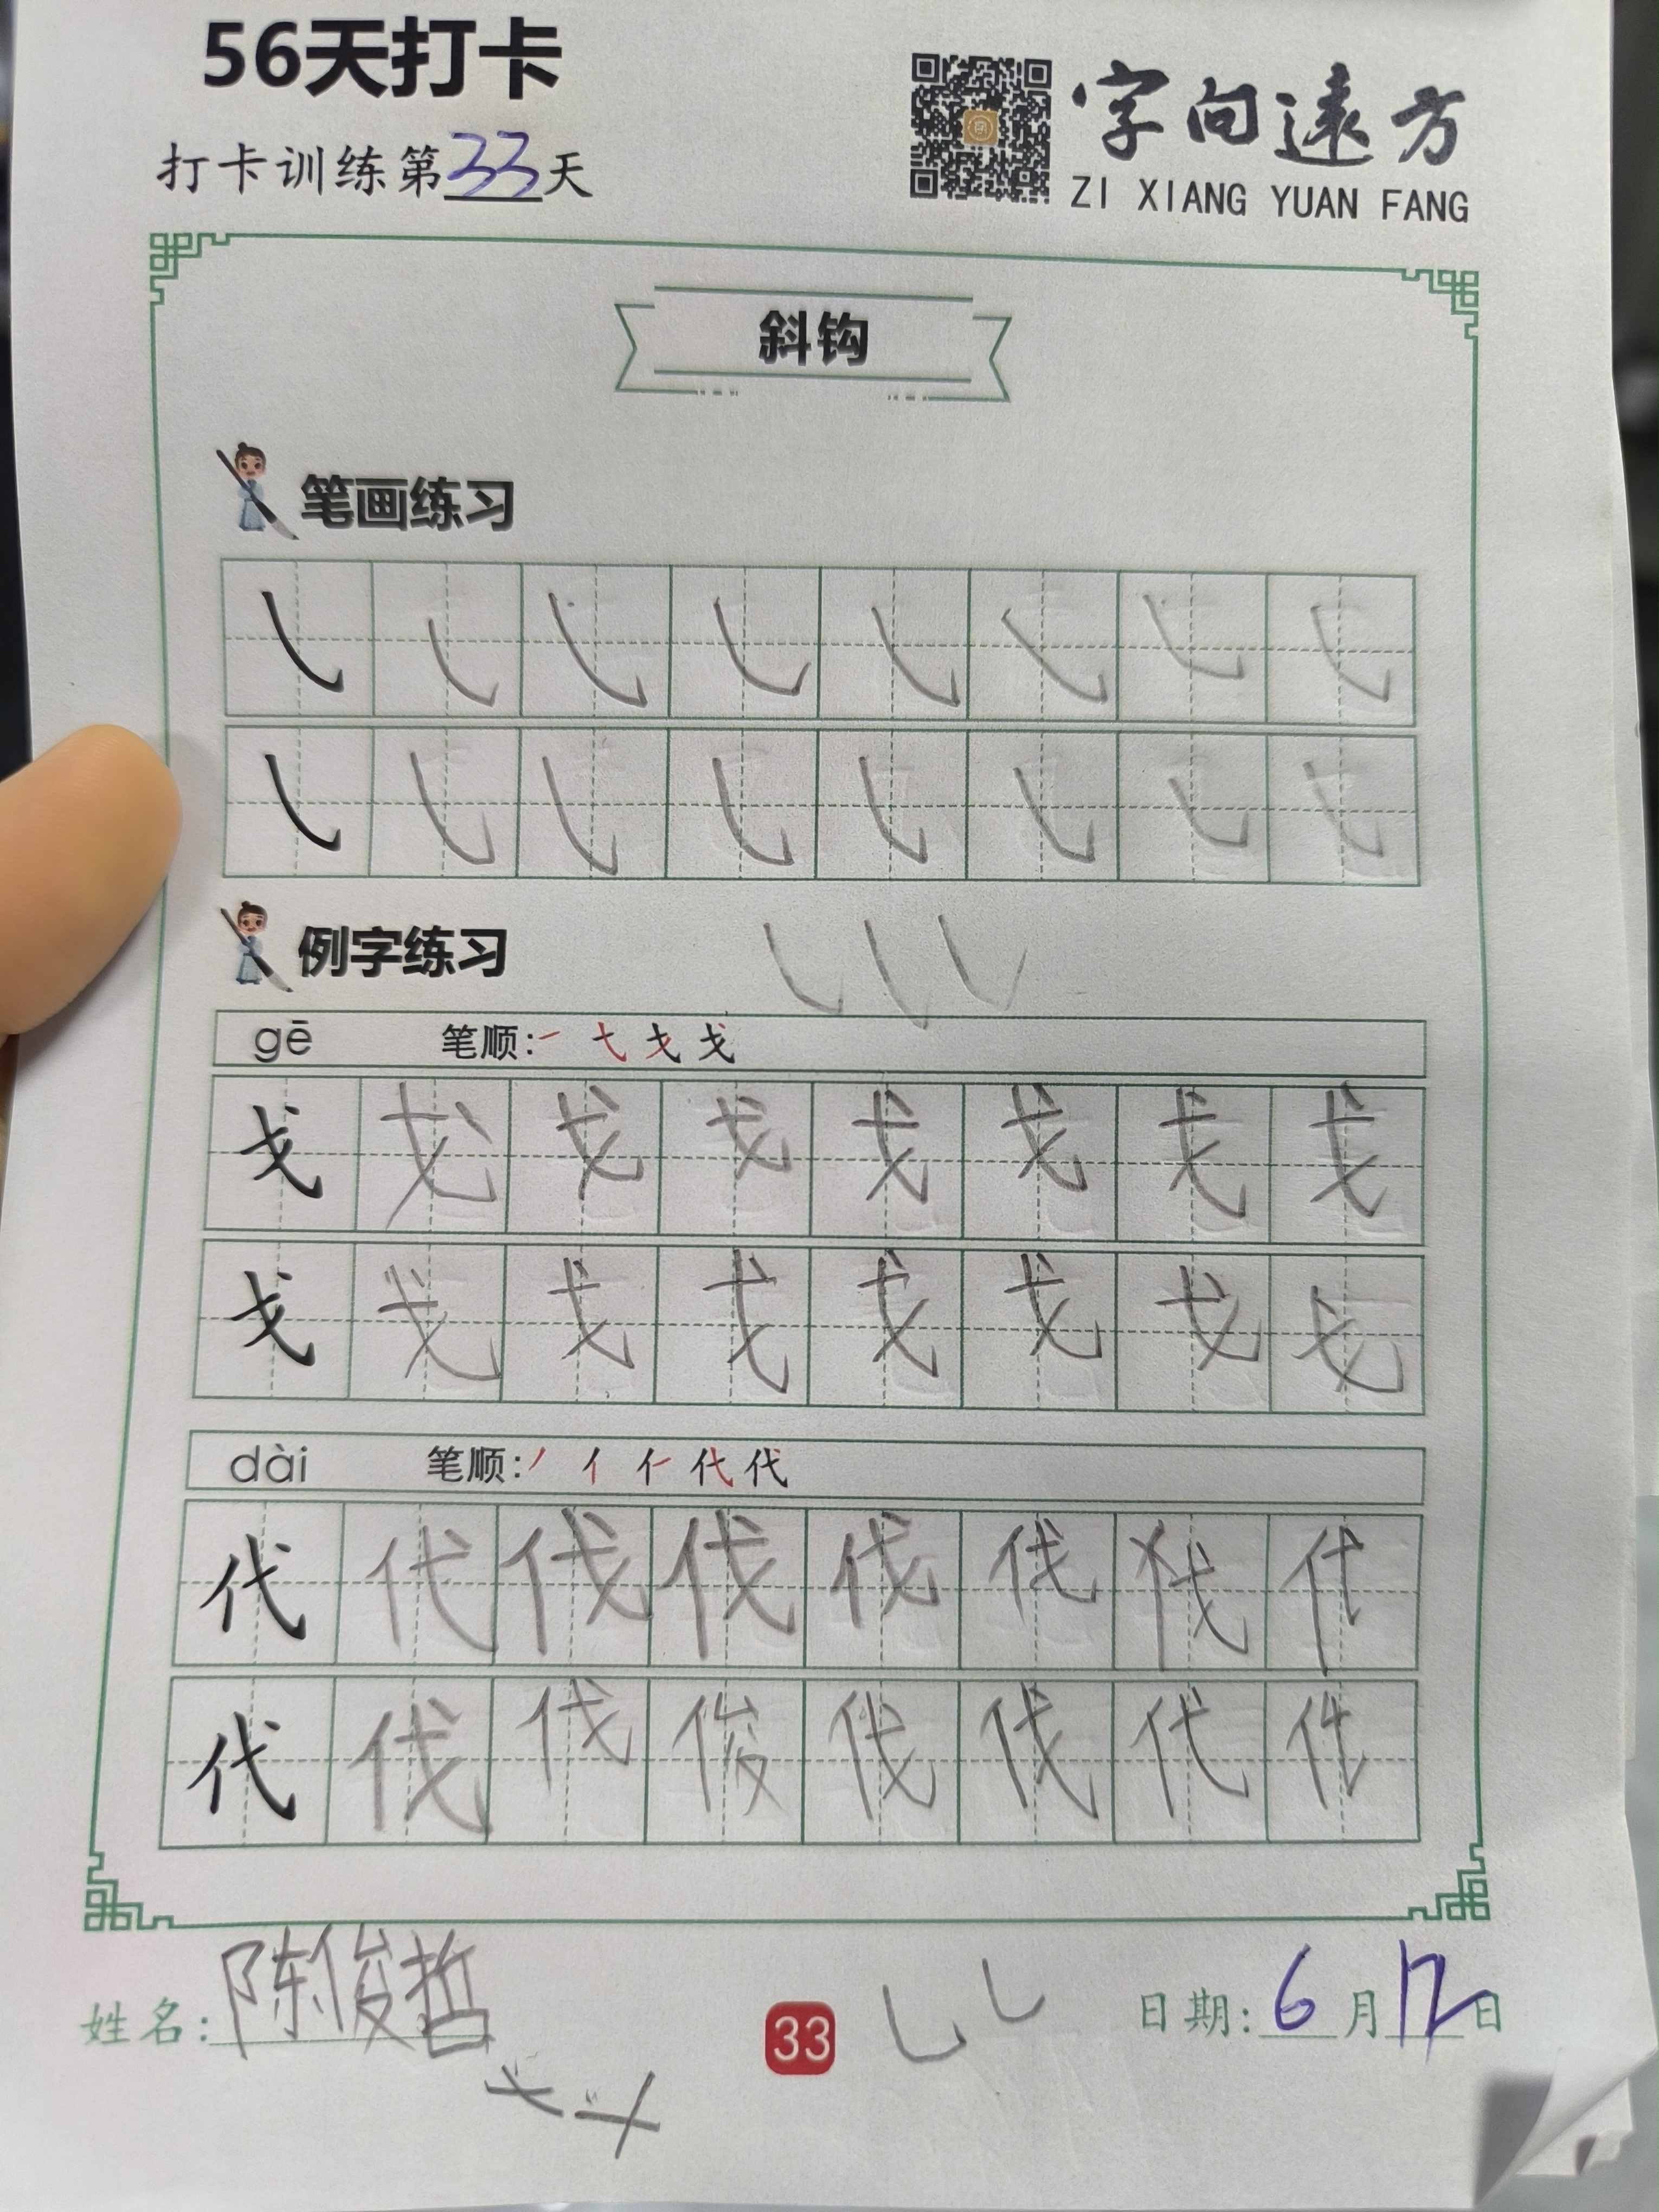 56天打卡
打卡训练第33天
字向遠方
ZI XIANG YUAN FANG
斜钩
笔画练习
例字练习
gē 笔顺:一 弋 戈 戈
戈 戈 戈 戈 戈 戈 戈 戈
戈 戈 戈 戈 戈 戈 戈 戈
dài 笔顺:丿 亻 仁 代 代
代 代 伐 伐 伐 代
代 伐 伐 俊 伐 伐 代
姓名:陈俊哲
33
日期:6月12日